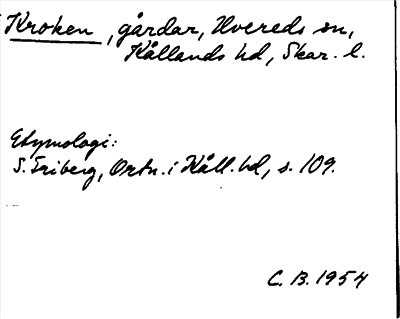 Kroken, gårdar, Hvereds sn,
Kållands hd, Skar. l.
Etymologi:
S. Friberg, Ortn. i Kåll. hd, s. 109.
C. B. 1954